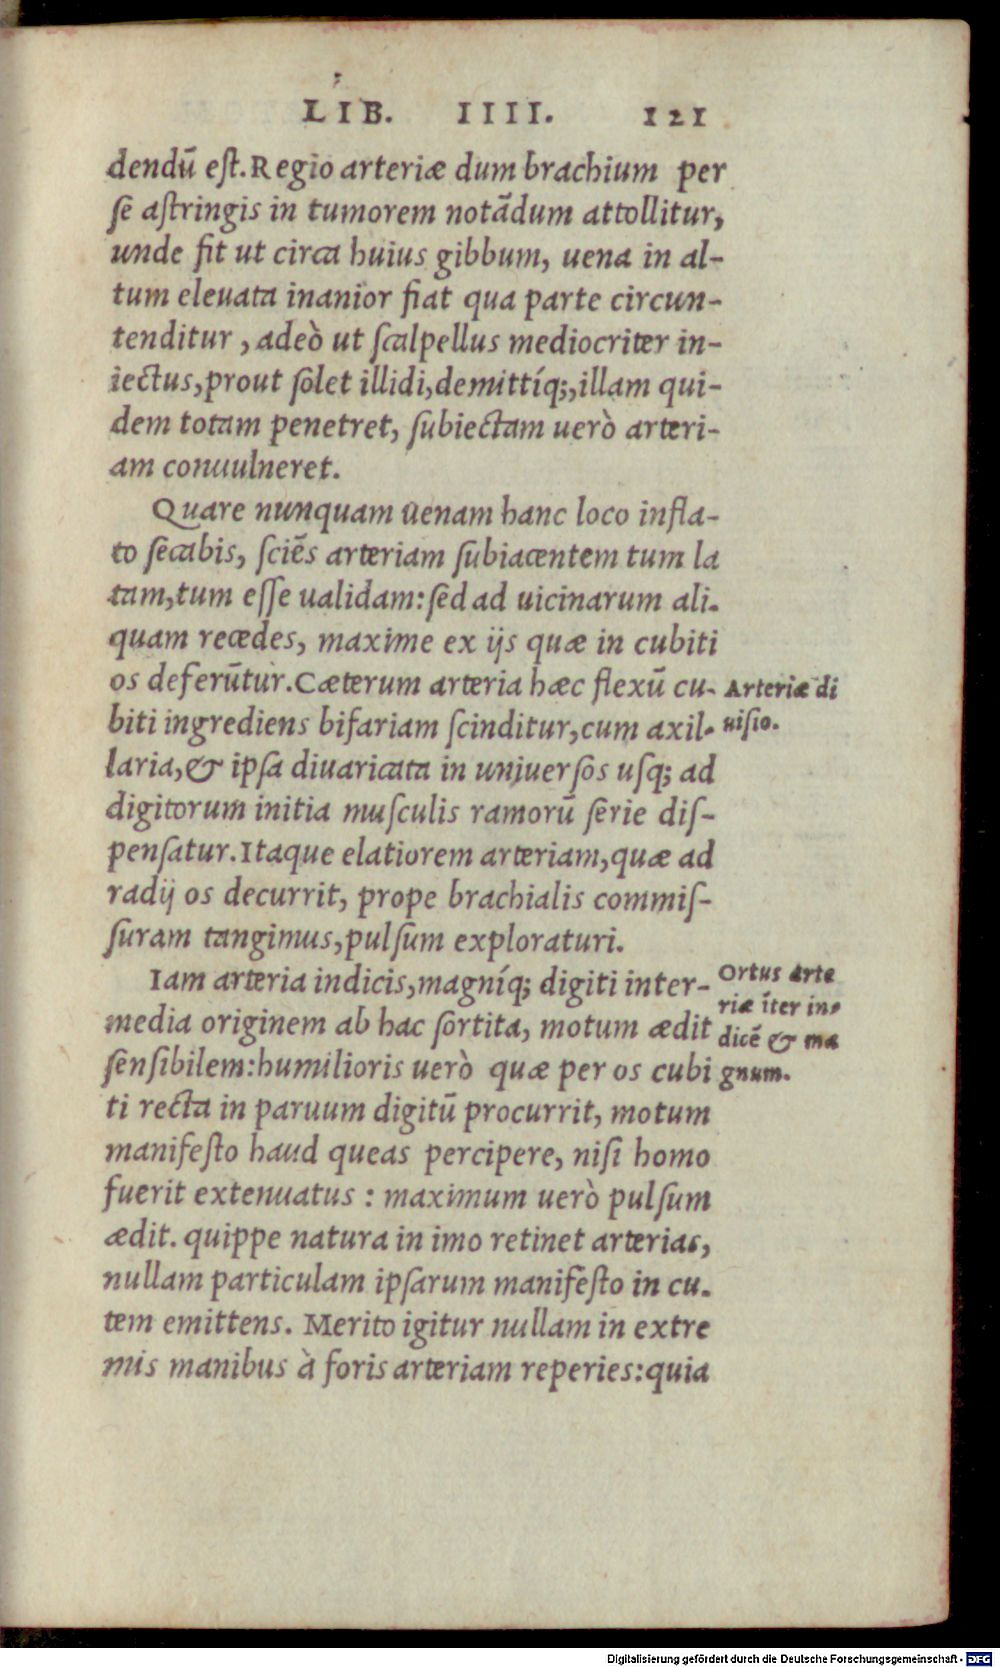 LIB. IIII. 121
dendũ eſt. Regio arteriæ dum brachium per
ſe aſtringis in tumorem notãdum attollitur,
unde fit ut circa huius gibbum, uena in al-
tum eleuata inanior fiat qua parte circun-
tenditur, adeò ut ſcalpellus mediocriter in-
iectus, prout ſolet illidi, demittíq;, illam qui-
dem totam penetret, ſubiectam uerò arteri-
am conuulneret.
Quare nunquam uenam hanc loco infla-
to ſecabis, ſciẽs arteriam ſubiacentem tum la
tam, tum eſſe ualidam: ſed ad uicinarum ali-
quam recedes, maxime ex ijs quæ in cubiti
os deferũtur. Cæterum arteria hæc flexũ cu-
Arteriæ di
biti ingrediens bifariam ſcinditur, cum axil-
uiſio.
laria, & ipſa diuaricata in uniuerſos uſq; ad
digitorum initia muſculis ramorũ ſerie diſ-
penſatur. Itaque elatiorem arteriam, quæ ad
radij os decurrit, prope brachialis commiſ-
ſuram tangimus, pulſum exploraturi.
Iam arteria indicis, magníq; digiti inter-
Ortus arte
media originem ab hac ſortita, motum ædit
riæ ĩter in-
ſenſibilem: humilioris uerò quæ per os cubi
dicẽ & ma
gnum.
ti recta in paruum digitũ procurrit, motum
manifeſto haud queas percipere, niſi homo
fuerit extenuatus : maximum uerò pulſum
ædit. quippe natura in imo retinet arterias,
nullam particulam ipſarum manifeſto in cu-
tem emittens. Merito igitur nullam in extre
mis manibus à foris arteriam reperies: quia
Digitalisierung gefördert durch die Deutsche Forschungsgemeinschaft - DFG